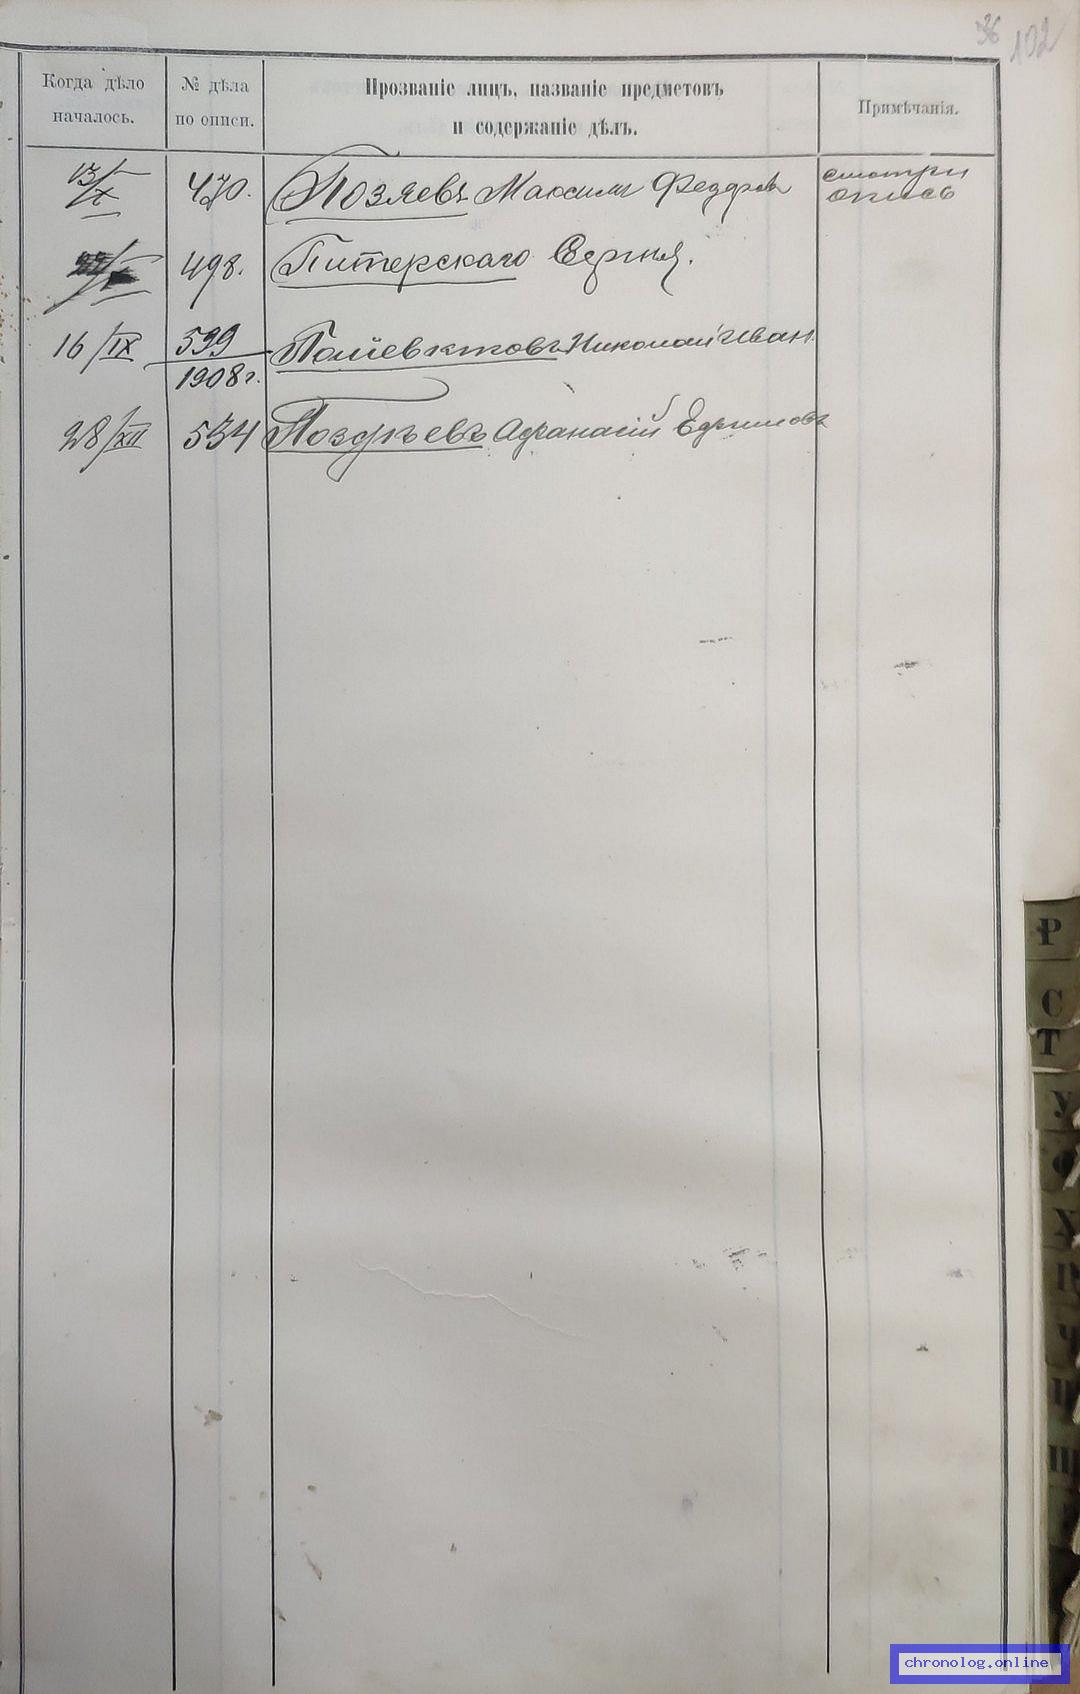 36 102
Когда дѣло началось.
№ дѣла по описи.
Прозваніе лицъ, названіе предметовъ
и содержаніе дѣлъ.
Примѣчанія.
13/X 470. Позяевъ Максимъ Федоровъ смотри
опись
498. Питерскаго
16/IX 599 Поліевктовъ Николай Иван
1908 г.
28/XII 534 Поздѣевъ Афанасій Ефимовъ
Р
С
Т
У
Х
Ч
Ш
chronolog.online